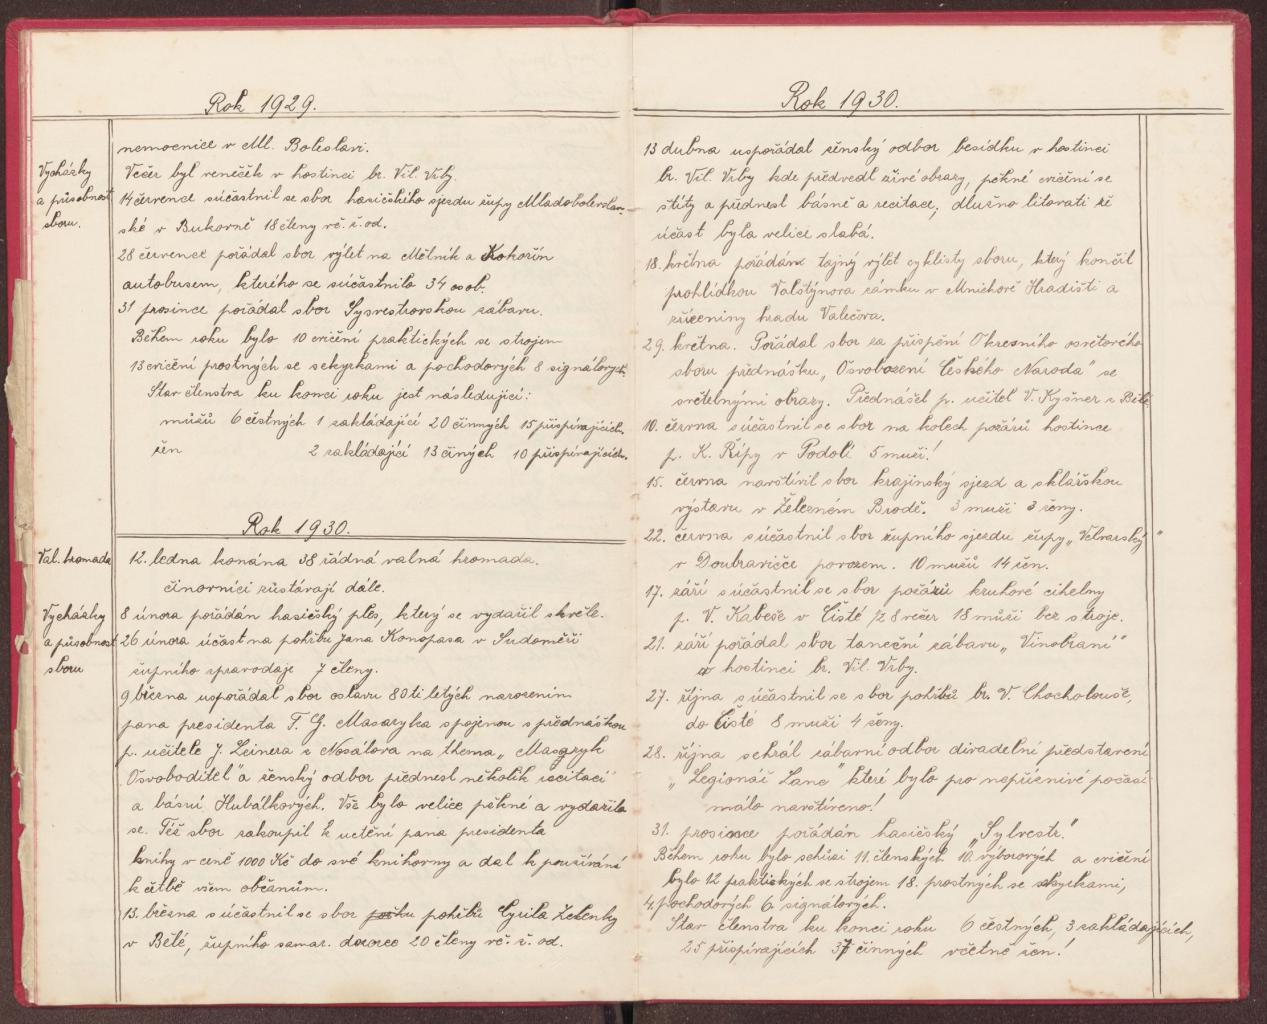 Rok 1929.
nemocnice v Ml. Boleslavi.
Vycházky
a působnost
sboru.
Večer byl věneček v hostinci br. Vil. Vrby.
14 července súčastnil se sbor hasičského sjezdu župy Mladoboleslav-
ské v Bukovně 18 členy vč. ž. od.
28 července pořádal sbor výlet na Mělník a Kokořín
autobusem, kterého se súčastnilo 34 osob.
31 prosince pořádal sbor Sysvestrovskou zábavu.
Během roku bylo 10 cvičení praktických se strojem
13 cvičení prostných se sekyrkami a pochodových 8 signálových.
Stav členstva ku konci roku jest následující:
mužů 6 čestných 1 zakládající 20 činných 15 přispívajících.
žen 2 zakládající 13 činých 10 přispívajících.
Rok 1930.
Val. hromada
12. ledna konána 38 řádná valná hromada.
činovníci zůstávají dále.
Vycházky
a působnost
sboru
8 února pořádán hasičský ples, který se vydařil skvěle.
26 února účast na pohřbu Jana Konopasa v Sudoměři
župního zpravodaje 7 členy.
9 března uspořádal sbor oslavu 80ti letých narozenin
pana presidenta T. G. Masaryka spojenou s přednáškou
p. učitele J. Leinera z Nosálova na thema „Masaryk
Osvoboditel" a ženský odbor přednesl několik recitací
a básní Hubálkových. Vše bylo velice pěkné a vydařilo
se. Též sbor zakoupil k uctění pana presidenta
knihy v ceně 1000 Kč do své knihovny a dal k používání
k četbě všem občanům.
13. března súčastnil se sbor pohřbu Cyrila Zelenky
v Bělé, župního samar. dozorce 20 členy vč. ž. od.
Rok 1930.
13 dubna uspořádal ženský odbor besídku v hostinci
br. Vil. Vrby kde předvedl živé obrazy, pěkné cvičení se
štíty a přednesl básně a recitace, dlužno litovati že
účast byla velice slabá.
18. května pořádán tajný výlet cyklisty sboru, který končil
prohlídkou Valštýnova zámku v Mnichově Hradišti a
zříceniny hradu Valečova.
29. května. Pořádal sbor za přispění Okresního osvětového
sboru přednášku „Osvobození Českého Národa" se
světelnými obrazy. Přednášel p. učitel V. Kyšner z Bělé
10. června súčastnil se sbor na kolech požárů hostince
p. K. Řípy v Podolí 5 muži!
15. června navštívil sbor krajinský sjezd a sklářskou
výstavu v Železném Brodě. 3 muži 3 ženy.
22. června súčastnil sbor župního sjezdu župy „Velvarský"
v Doubravičce povozem. 10 mužů 14 žen.
17. září súčastnil se sbor požárů kruhové cihelny
p. V. Kabeše v Čisté ½8 večer 18 muži bez stroje.
21. září pořádal sbor taneční zábavu „Vinobraní"
v hostinci br. Vil. Vrby.
27. října súčastnil se sbor pohřbů br. V. Chocholouše,
do Čisté 8 muži 4 ženy.
28. října sehrál zábavní odbor divadelní představení
„Legionář Lane" které bylo pro nepříznivé počasí
málo navštíveno!
31. prosince pořádán hasičský „Sylvestr."
Během roku bylo schůzí 11. členských 10. výborových a cvičení
bylo 12 praktických se strojem 18. prostných se skyrkami,
4. pochodových 6. signálových.
Stav členstva ku konci roku 6 čestných, 3 zakládajících,
25 přispívajících 37 činných včetně žen!